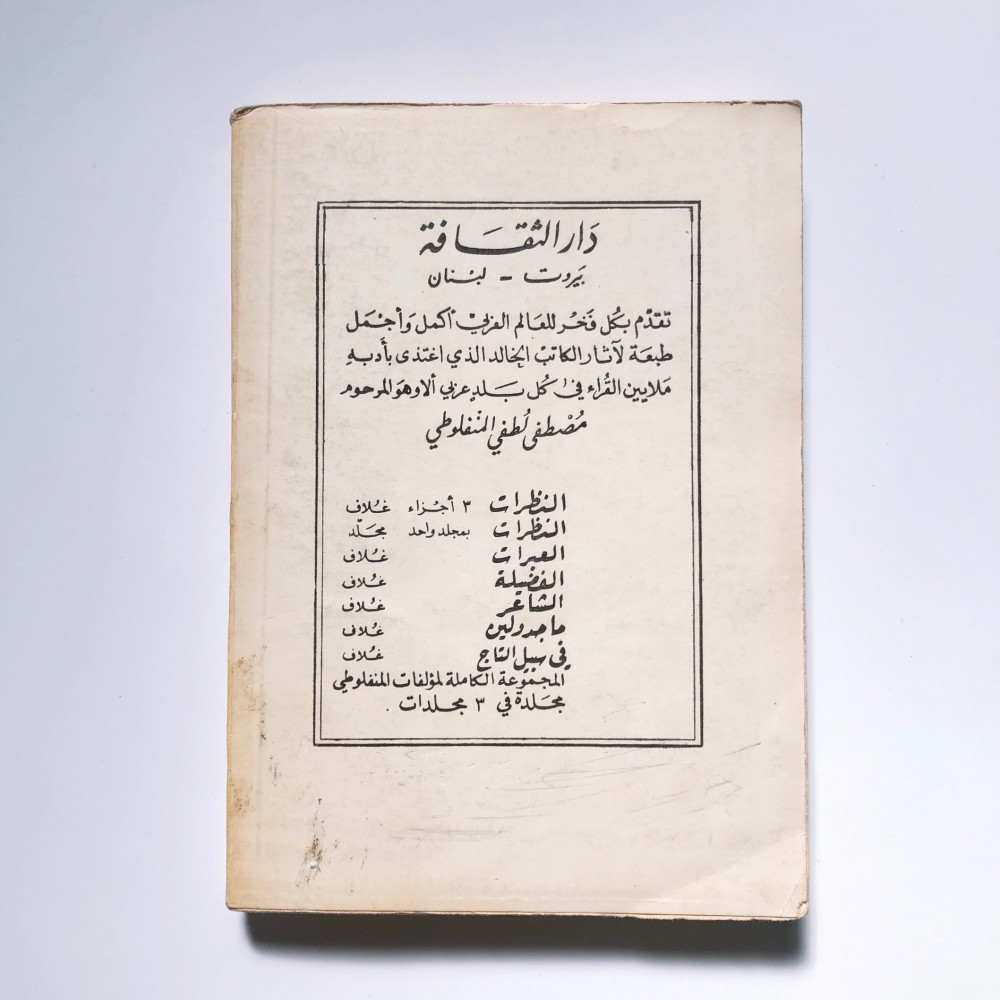 دَار الثقَافة
بَيروت - لبْنان
تقدّم بكُل فَخر للعَالم العَربي أكمل وَأجْمَل
طبعَة لآثار الكاتبْ الخالد الذي اغتذى بأدبهِ
مَلايين القُراء في كُل بَلدٍ عربي ألا وهوَ المرحوم
مُصْطفى لُطفي المنْفلوطي
النظرات ٣ أجْزاء غلاف
النظرات بمجلد واحد مجلّد
العبرات غلاف
الفضيلة غلاف
الشاعر غلاف
ماجدولين غلاف
في سبيل التاج غلاف
المجموعة الكاملة لمؤلفات المنفلوطي
مجلدة في ٣ مجلدات .